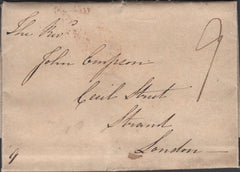 The Revd
John Empson
Cecil Street
Strand
London
9
9